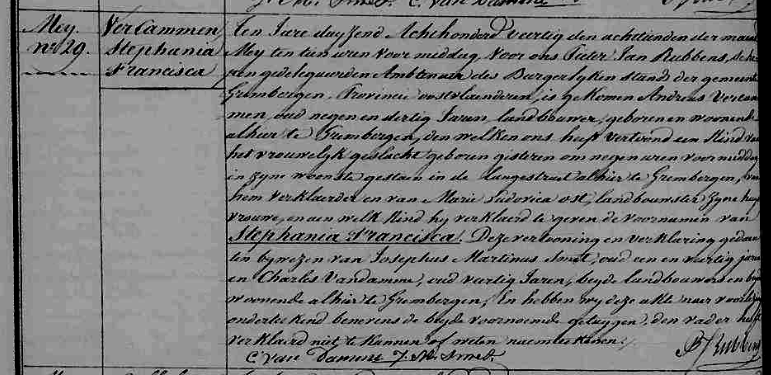 J. M. Smet. C. Van Damme
Mey
n° 29.
VerCammen
Stephania
Francisca
Ten Jare duyzend Achthonderd veertig den achttienden der maand
Mey ten tien uren voor middag, Voor ons Pieter Jan Rubbens,
gedelegueerden Ambtenaer des Burgerlyken stands der gemeente
Grembergen, Provincie oostvlaenderen, is gekomen Andreas Vercam
men, oud negen en dertig Jaren, landbouwer, geboren en woonende
alhier te Grembergen, den welken ons heeft vertoond een Kind van
het vrouwelyk geslacht geboren gisteren om negen uren voor middag
in zyne woonste gestaen in de langestraet alhier te Grembergen, van
hem verklaerder en van Marie Ludovica ost, landbouwster zyne huys
vrouwe, en aen welk Kind hy verklaerd te geven de voornamen van
Stephania Francisca. Deze vertooning en verklaring gedaen
ten bywezen van Josephus Martinus Smet, oud een en veertig jaren
en Charles Vandamme, oud veertig Jaren, beyde landbouwers en
woonende alhier te Grembergen, En hebben wy deze akte naer voorlezing
onderteekend benevens de beyde voornoemde getuygen, den vader heeft
verklaerd niet te kunnen of weten naemteekenen.
C. Van Damme J. M. Smet. Rubbens